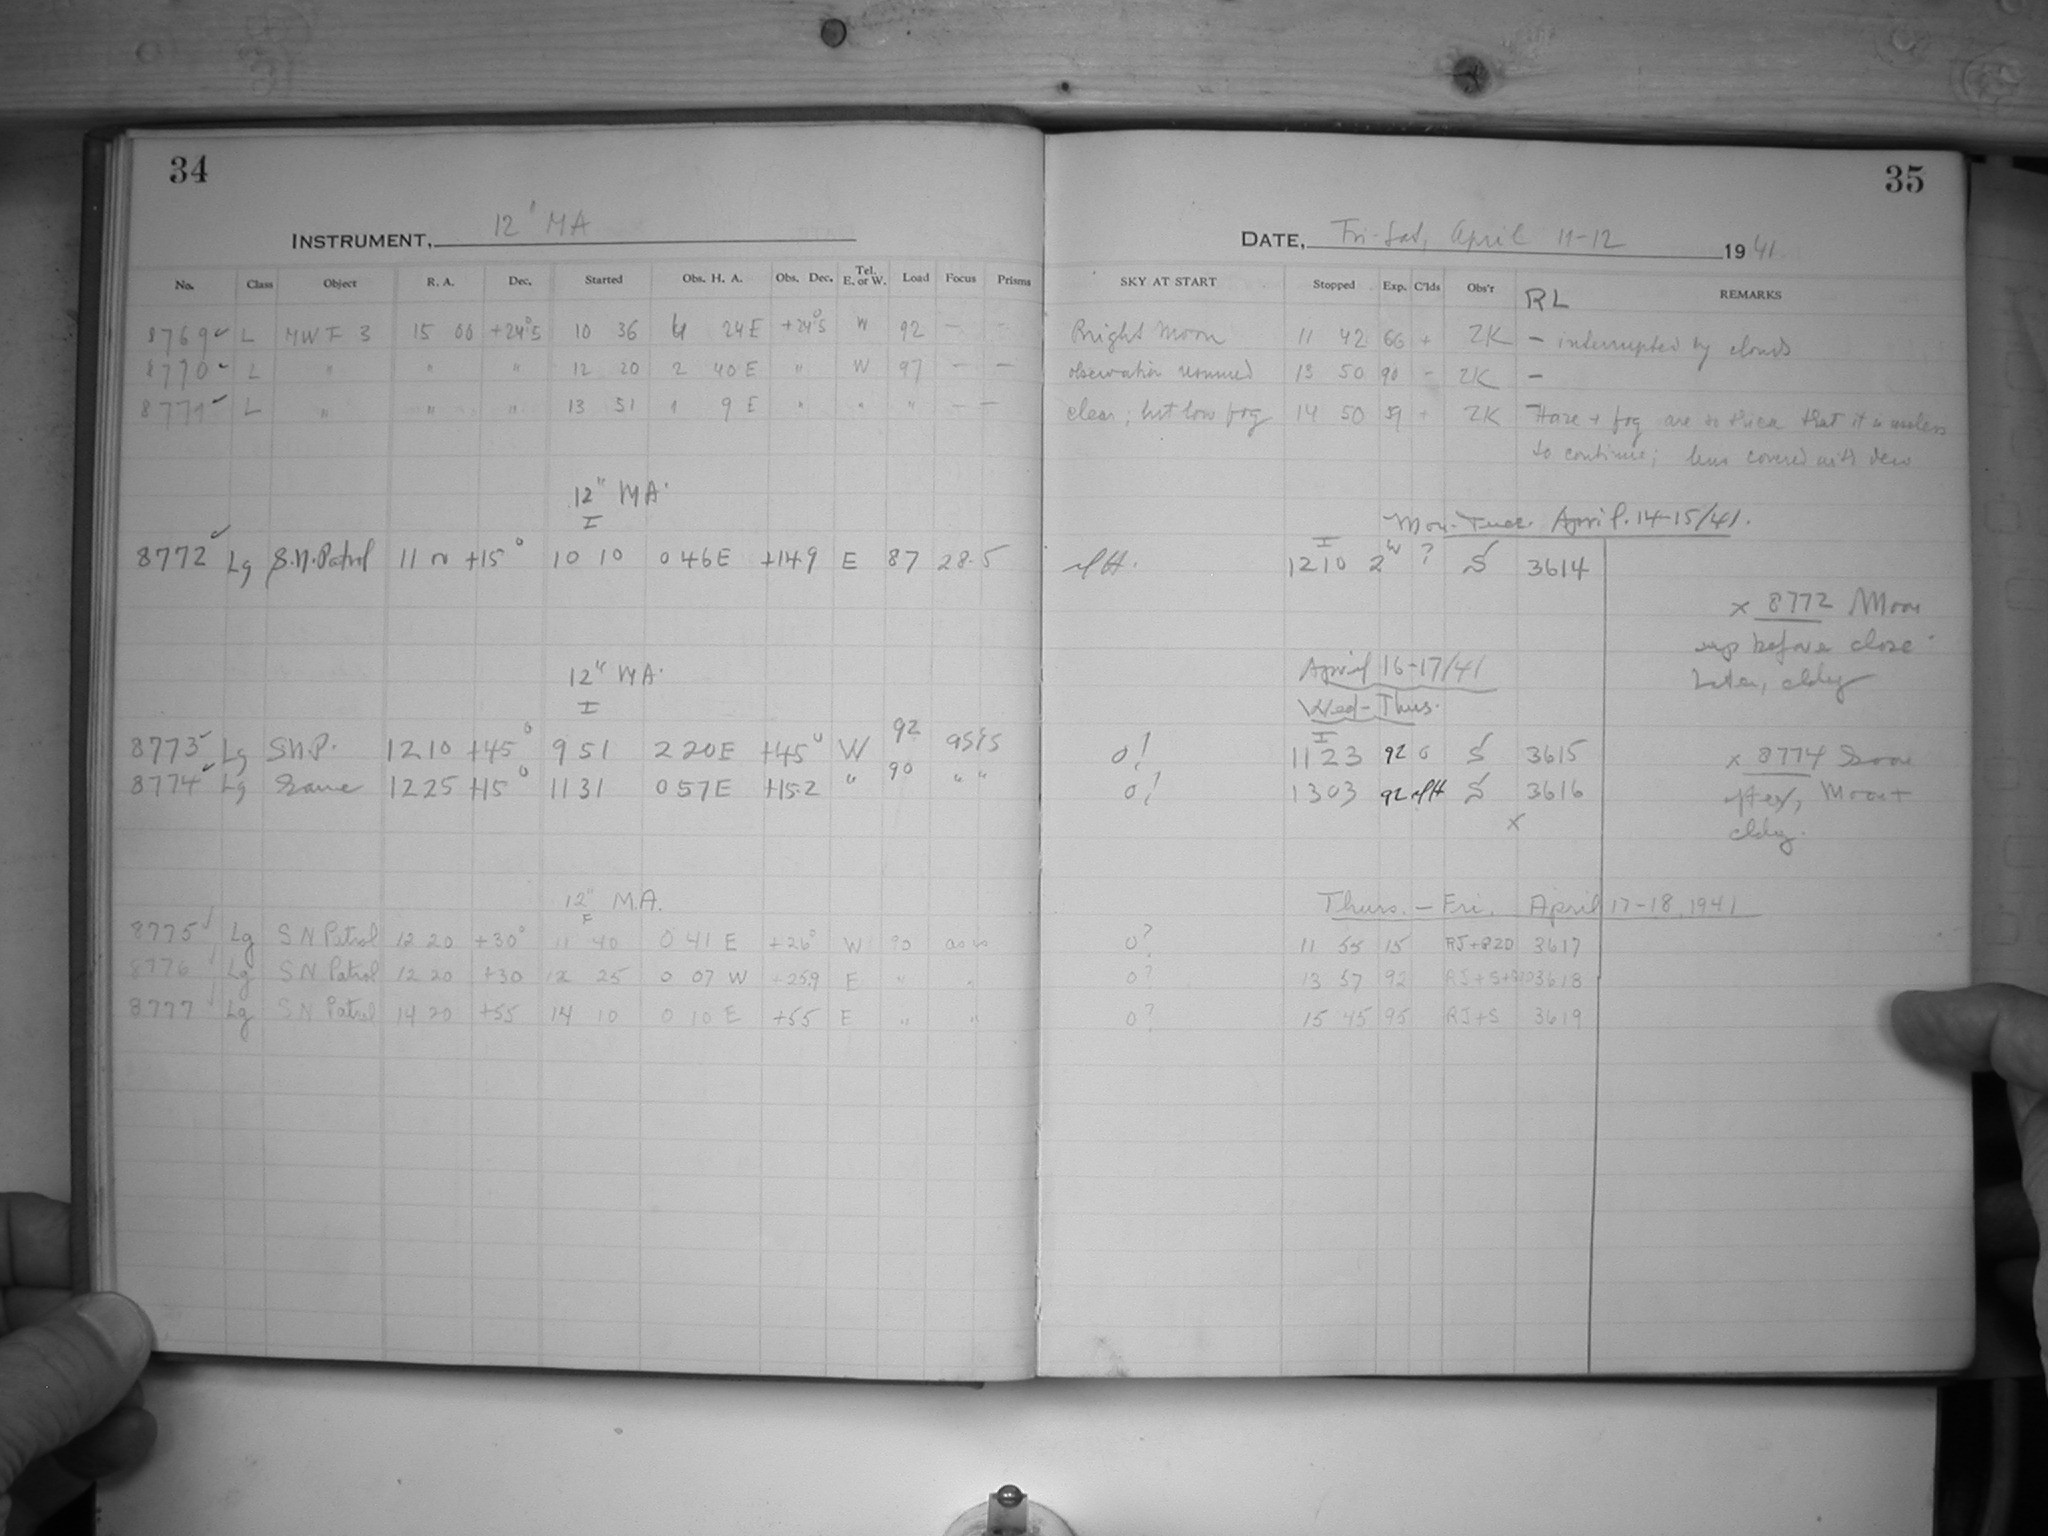 34
INSTRUMENT, 12" MA
No. Class Object R. A. Dec. Started Obs. H. A. Obs. Dec. Tel. E. or W. Load Focus Prisms
8769 ✓ L MWF 3 15 00 +24°5 10 36 4 24 E +24°5 W 92 — -
8770 ✓ L " " " 12 20 2 40 E " W 97 — —
8771 ✓ L " " " 13 51 1 9 E " " " — —
12" MA.
I
8772 ✓ Lg S.N. Patrol 11 +15° 10 10 0 46 E +149 E 87 28.5
12" MA.
I
8773 ✓ Lg S.N.P. 12 10 +45° 9 51 2 20 E +45° W 92
8774 ✓ Lg Same 12 25 +15° 11 31 0 57 E +15.2 " 90 " "
12" M.A.
F
8775 ✓ Lg S N Patrol 12 20 +30° 11 40 0 41 E +26° W 90 as is
8776 ✓ Lg S N Patrol 12 20 +30 12 25 0 07 W +25.9 E " "
8777 ✓ Lg S N Patrol 14 20 +55 14 10 0 10 E +55 E " "
35
DATE, Fri-Sat, April 11-12 1941
SKY AT START Stopped Exp. C'lds Obs'r RL REMARKS
Bright Moon 11 42 66 + ZK — interrupted by clouds
observation resumed 13 50 90 - ZK —
clear; but low fog 14 50 59 + ZK Haze + fog are so thick that it is useless
to continue; lens covered with dew
Mon-Tues. April. 14-15/41.
I
12 10 2 ? S 3614
x 8772 Moon
up before close
Later, cldy
April 16-17/41
Wed-Thus.
I
o! 11 23 92 0 S 3615 x 8774 Soon
o! 13 03 92 S 3616 after, Moon +
x cldy.
Thurs. - Fri. April 17-18, 1941
0? 11 55 15 RJ+ 3617
0? 13 57 92 RJ+S+ 3618
0? 15 45 95 RJ+S 3619